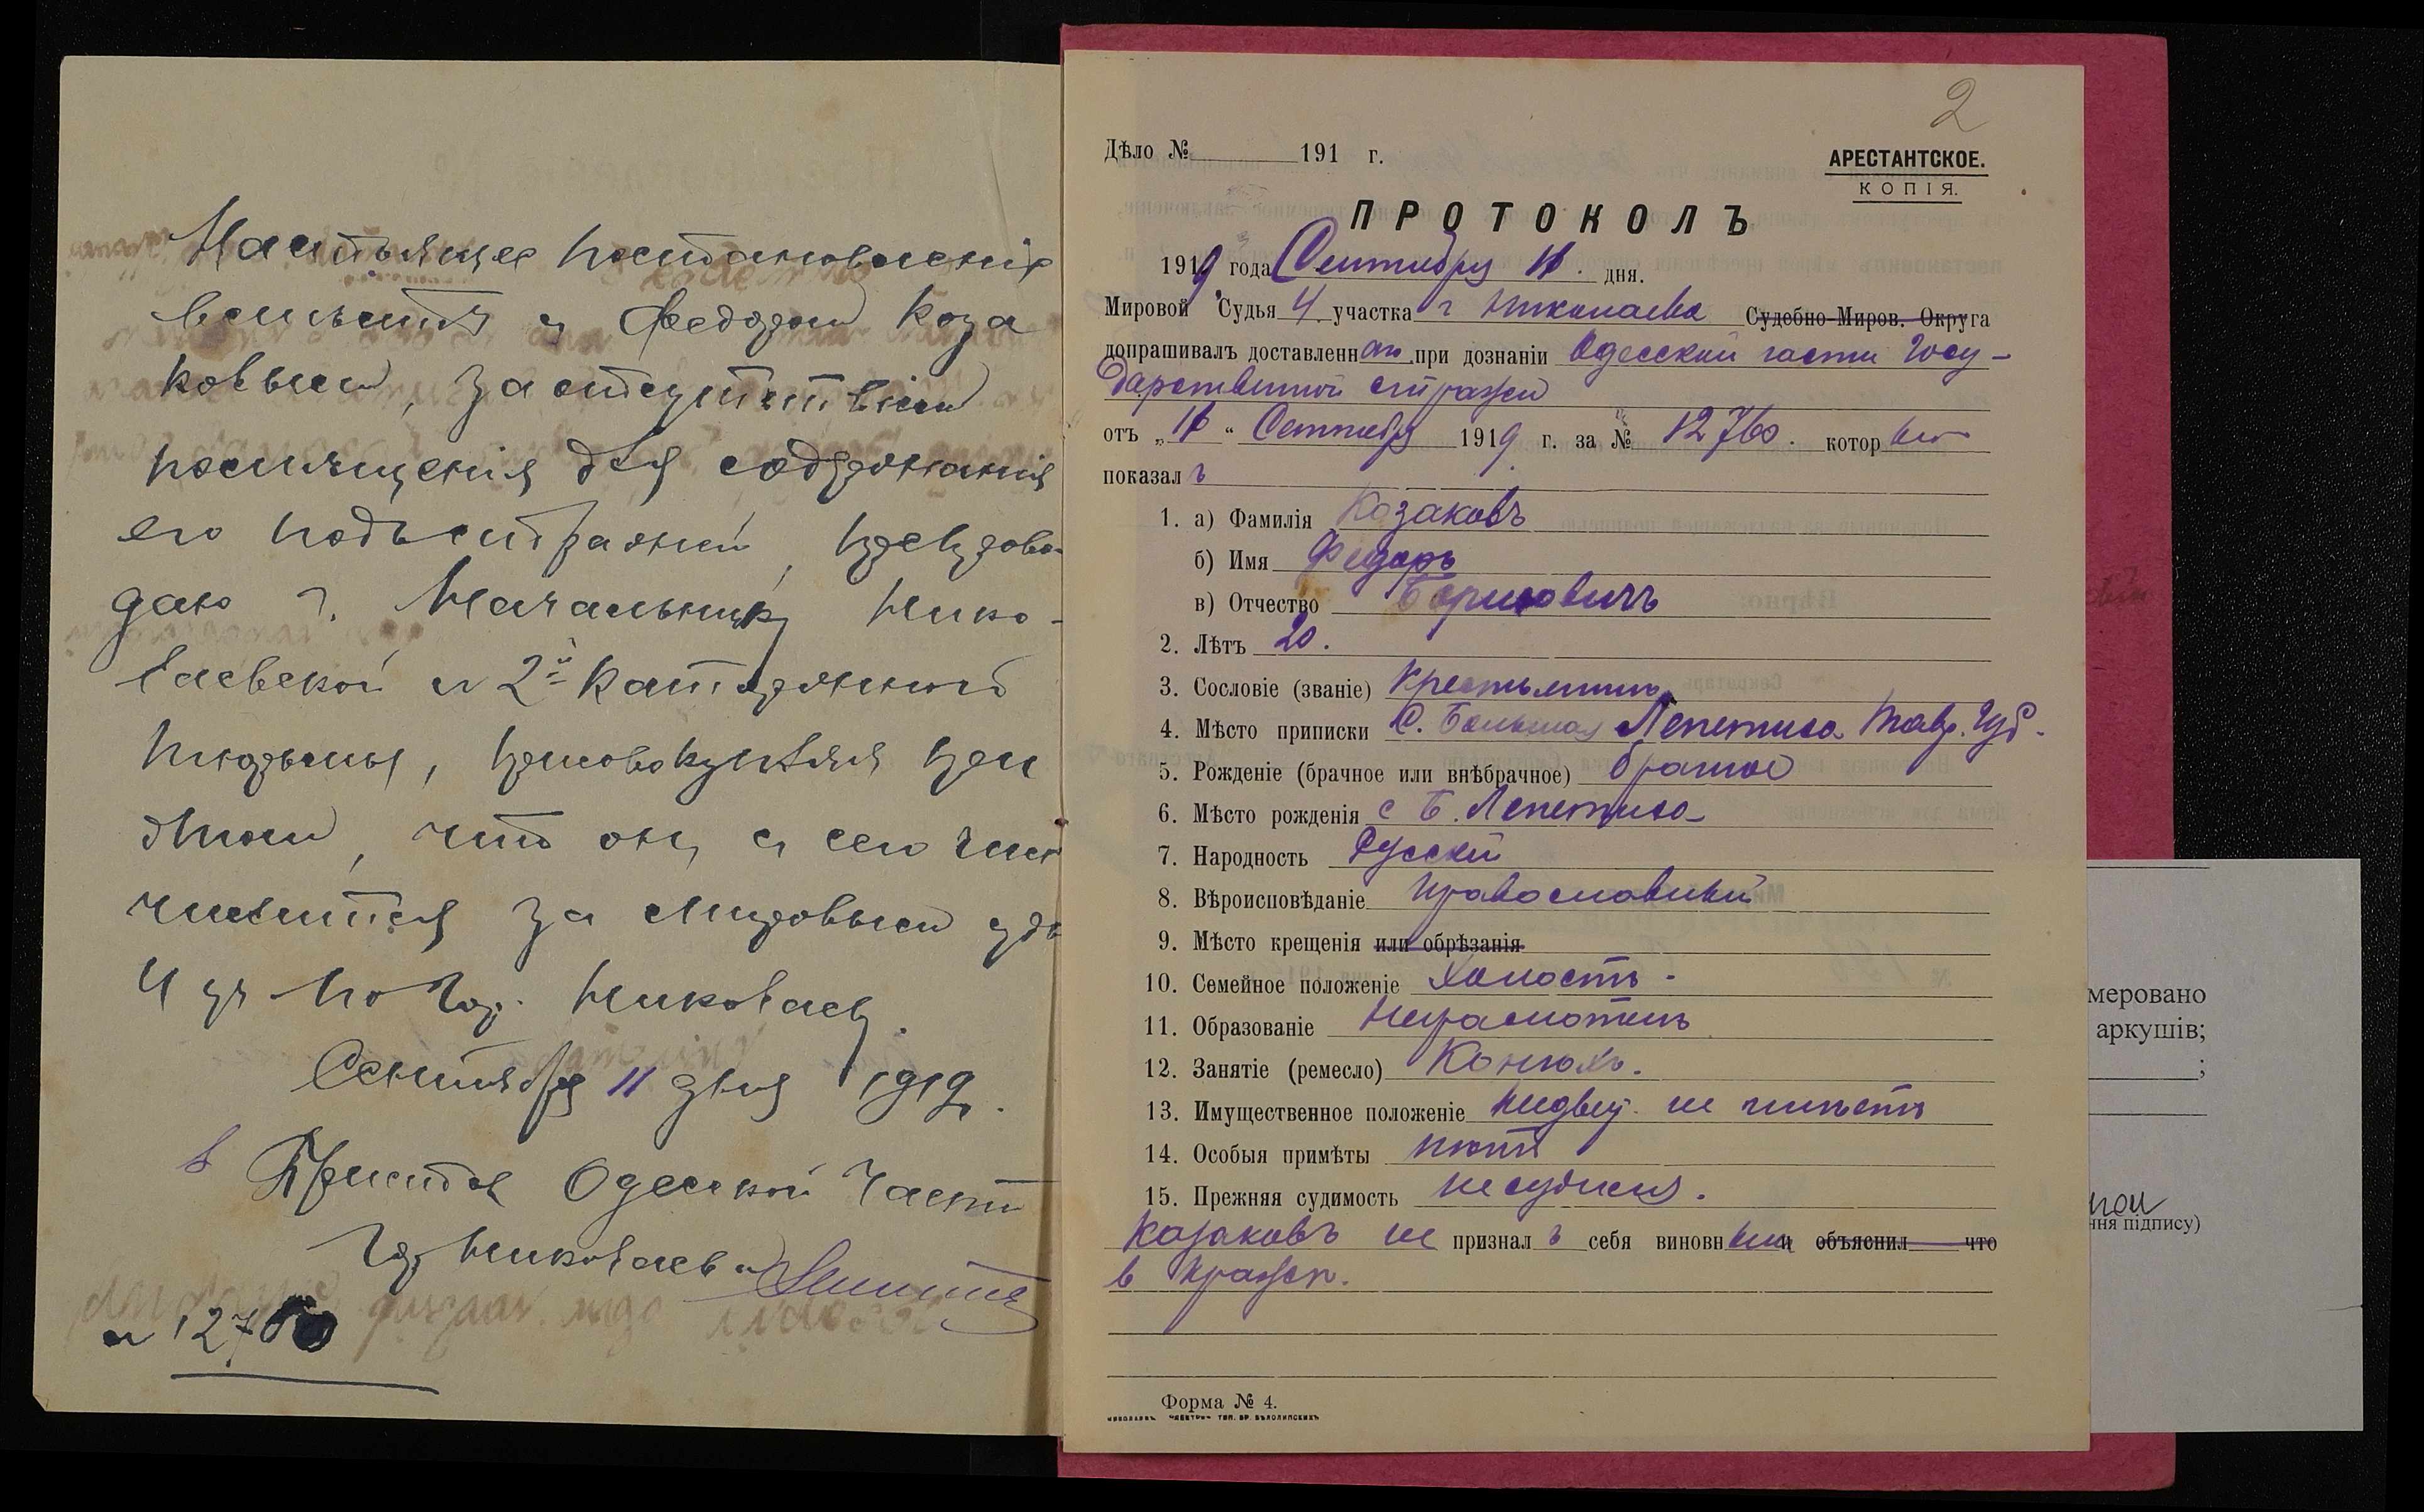 Настоящее постановленіе
вмѣстѣ съ Федоромъ Коза
ковымъ, за отсутствіемъ
помѣщенія для содержанія
его подъ стражей, препрово-
даю Г. Начальнику Нико-
лаевской № 2й каторжной
тюрьмы, присовокупляя при
этомъ, что онъ съ сего числ
числится за мировымъ
4 уч по гор. Николаеву.
Сентября 11 дня 1919.
Приставъ Одесской части
гор Николаева
№ 12760
2
Дѣло № 191 г.
АРЕСТАНТСКОЕ.
КОПІЯ.
ПРОТОКОЛЪ
1919 года Сентября 11. дня.
Мировой Судья 4 участка г Николаева Судебно-Миров. Округа
допрашивалъ доставленнаго при дознаніи Одесской части Госу-
дарственной стражи
отъ „11“ Сентября 1919 г. за № 12760. который
показалъ
1. а) Фамилія Козаковъ
б) Имя Федоръ
в) Отчество Борисовичъ
2. Лѣтъ 20.
3. Сословіе (званіе) Крестьянинъ
4. Мѣсто приписки С. Большая Лепетиха Тавр. Губ.
5. Рожденіе (брачное или внѣбрачное) брачное
6. Мѣсто рожденія с Б. Лепетиха
7. Народность Русскій
8. Вѣроисповѣданіе Православный
9. Мѣсто крещенія или обрѣзанія
10. Семейное положеніе Холостъ.
11. Образованіе Неграмотенъ
12. Занятіе (ремесло) Конюхъ.
13. Имущественное положеніе недвиж. не имѣетъ
14. Особыя примѣты нѣтъ
15. Прежняя судимость не судился.
Козаковъ не призналъ себя виновнымъ и объяснил что
в кражѣ.
Форма № 4.
меровано
аркушів;
;
ння підпису)